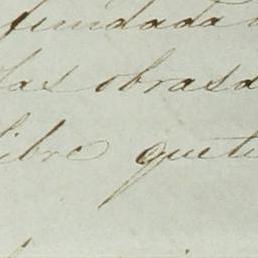 fundada
las obras d
libre que t